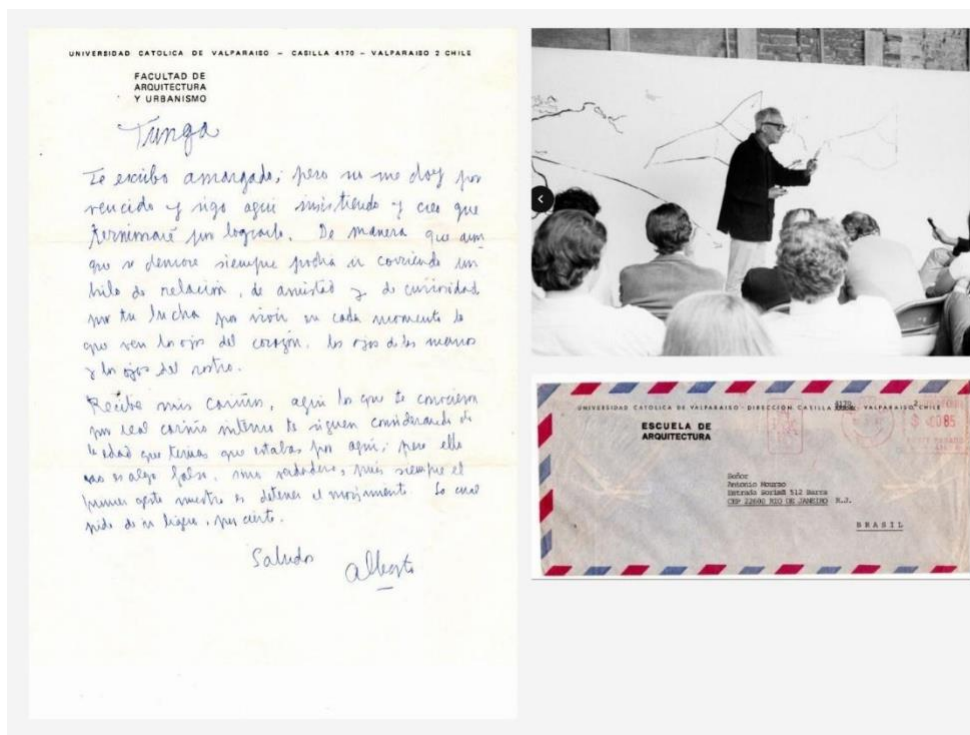 UNIVERSIDAD CATOLICA DE VALPARAISO – CASILLA 4170 – VALPARAISO 2 CHILE
FACULTAD DE
ARQUITECTURA
Y URBANISMO
Tunga
Te escribo amargado; pero no me doy por
vencido y sigo aquí insistiendo y creo que
terminaré por lograrlo. De manera que aun
que se demore siempre podrá ir corriendo un
hilo de relación, de amistad y de curiosidad
por tu lucha por vivir en cada momento lo
que ven los ojos del corazón, los ojos de las manos
y los ojos del rostro.
Recibe mis cariños, aquí los que te conocieron
por real cariño interno te siguen considerando de
la edad que tenías que estabas por aquí; pero ello
no es algo falso, sino verdadero, pues siempre el
primer gesto nuestro es detener el movimiento. Lo cual
pide de ir, por cierto.
Saludos
Alberto
UNIVERSIDAD CATOLICA DE VALPARAISO - DIRECCION CASILLA 4170 VALPARAISO 2 CHILE
$ 0085
ESCUELA DE
ARQUITECTURA
Señor
Antonio Mourao
Estrada 512 Barra
CEP 22600 RIO DE JANEIRO R.J.
BRASIL